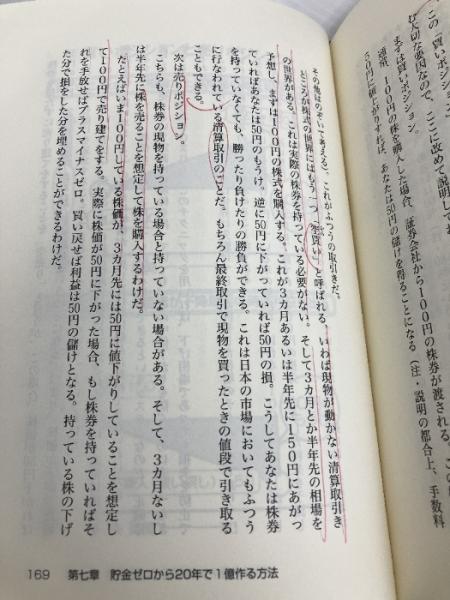 この「買いポジション
む大切な要因なので、ここに改めて説明して
まずは買いポジション。
通常、100円の株を購入した場合、証券会社から100円の株券が渡される。こ
00円に値上がりすれば、あなたは50円の儲けを得ることになる（注・説明の都合上、手数料
その他はのぞいて考える）、これがふつうの取引きだ。
ところが株式の世界にはもう一つ、「空買い」と呼ばれる、いわば現物が動かない清算取引き
の世界がある。これは実際の株券を持っている必要がない。そして3カ月とか半年先の相場を
予想し、まずは100円の株式を購入する。これが3カ月あるいは半年先に150円にあがっ
ていればあなたは50円のもうけ、逆に50円に下がっていれば50円の損。こうしてあなたは株券
を持っていなくても、勝ったり負けたりの勝負ができる。これは日本の市場においてもふつう
に行なわれている清算取引のことだ。もちろん最終取引で現物を買ったときの値段で引き取る
こともできる。
次は売りポジション。
こちらも、株券の現物を持っている場合と持っていない場合がある。そして、3カ月ないし
は半年先に株を売ることを想定して株を購入するわけだ。
たとえばいま100円している株価が、3カ月先には50円に値下がりしていることを想定し
100円で売り建てをする。実際に株価が50円に下がった場合、もし株券を持っていればそ
れを手放せばプラスマイナスゼロ。買い戻せば利益は50円の儲けとなる。持っている株の下げ
た分で損をした分を埋めることができるわけだ。
169 第七章 貯金ゼロから20年で1億作る方法